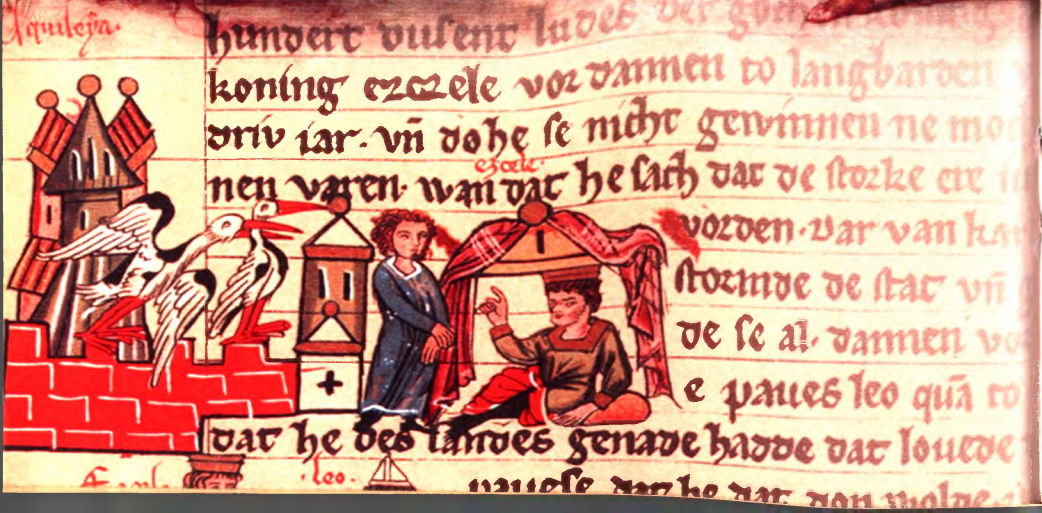 Aquileya.
hundert dusent ludes der
koning ezczele vor dannen to langbarden
driv iar. vn̄ do he se nicht gewinnen ne mo
ezcele.
nen varen. wan dat he sach dat de storke ere
worden. dar van
stormde de stat vn̄
de se al. dannen vo
e paues leo quā to
dat he des landes genade hadde dat louede
leo.
pauese dat he dat don wolde.